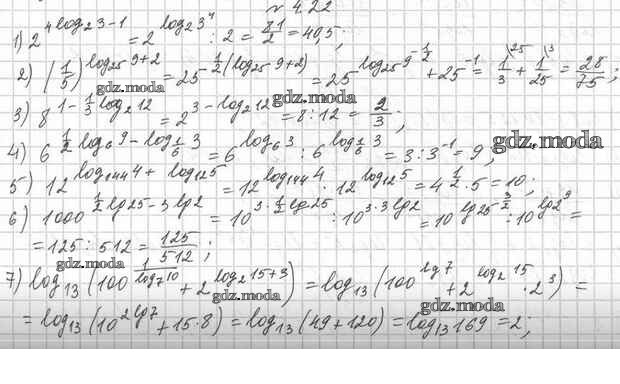 № 4.22
1) 2^{4log_2 3-1} = 2^{log_2 3^4} : 2 = 81/2 = 40,5;
2) (1/5)^{log_{25} 9+2} = 25^{-1/2(log_{25} 9+2)} = 25^{log_{25} 9^{-1/2}} + 25^{-1} = 1/3 + 1/25 = 28/75;
gdz.moda
3) 8^{1-1/3 log_2 12} = 2^{3-log_2 12} = 8 : 12 = 2/3;
gdz.moda
4) 6^{1/2 log_6 9 - log_{1/6} 3} = 6^{log_6 3} : 6^{log_{1/6} 3} = 3 : 3^{-1} = 9;
gdz.moda
5) 12^{log_{144} 4 + log_{12} 5} = 12^{log_{144} 4} · 12^{log_{12} 5} = 4^{1/2} · 5 = 10;
6) 1000^{1/2 lg25 - 3 lg2} = 10^{3·1/2 lg25} : 10^{3·3 lg2} = 10^{lg25^{3/2}} : 10^{lg2^9} =
= 125 : 512 = 125/512;
gdz.moda
7) log_{13}(100^{1/log_7 10} + 2^{log_2 15+3}) = log_{13}(100^{lg7} + 2^{log_2 15} · 2^3) =
gdz.moda
gdz.moda
= log_{13}(10^{2lg7} + 15·8) = log_{13}(49+120) = log_{13} 169 = 2;